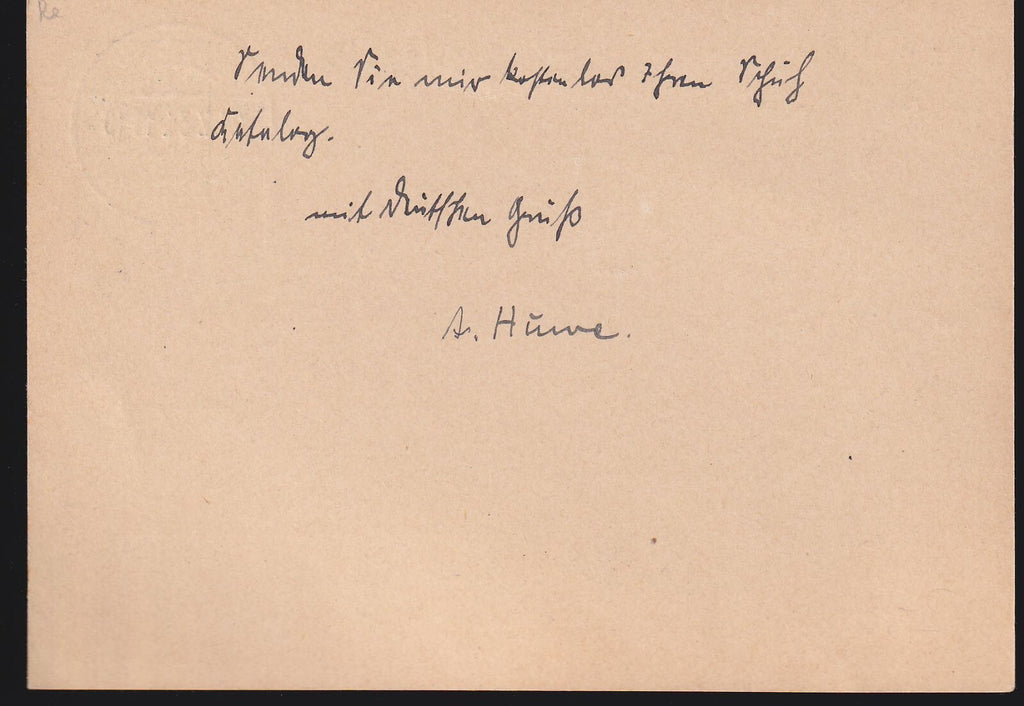 Re
Senden Sie mir kostenlos Ihren Schuh
Katalog.
mit Deutschen Gruß
A. Huwe.